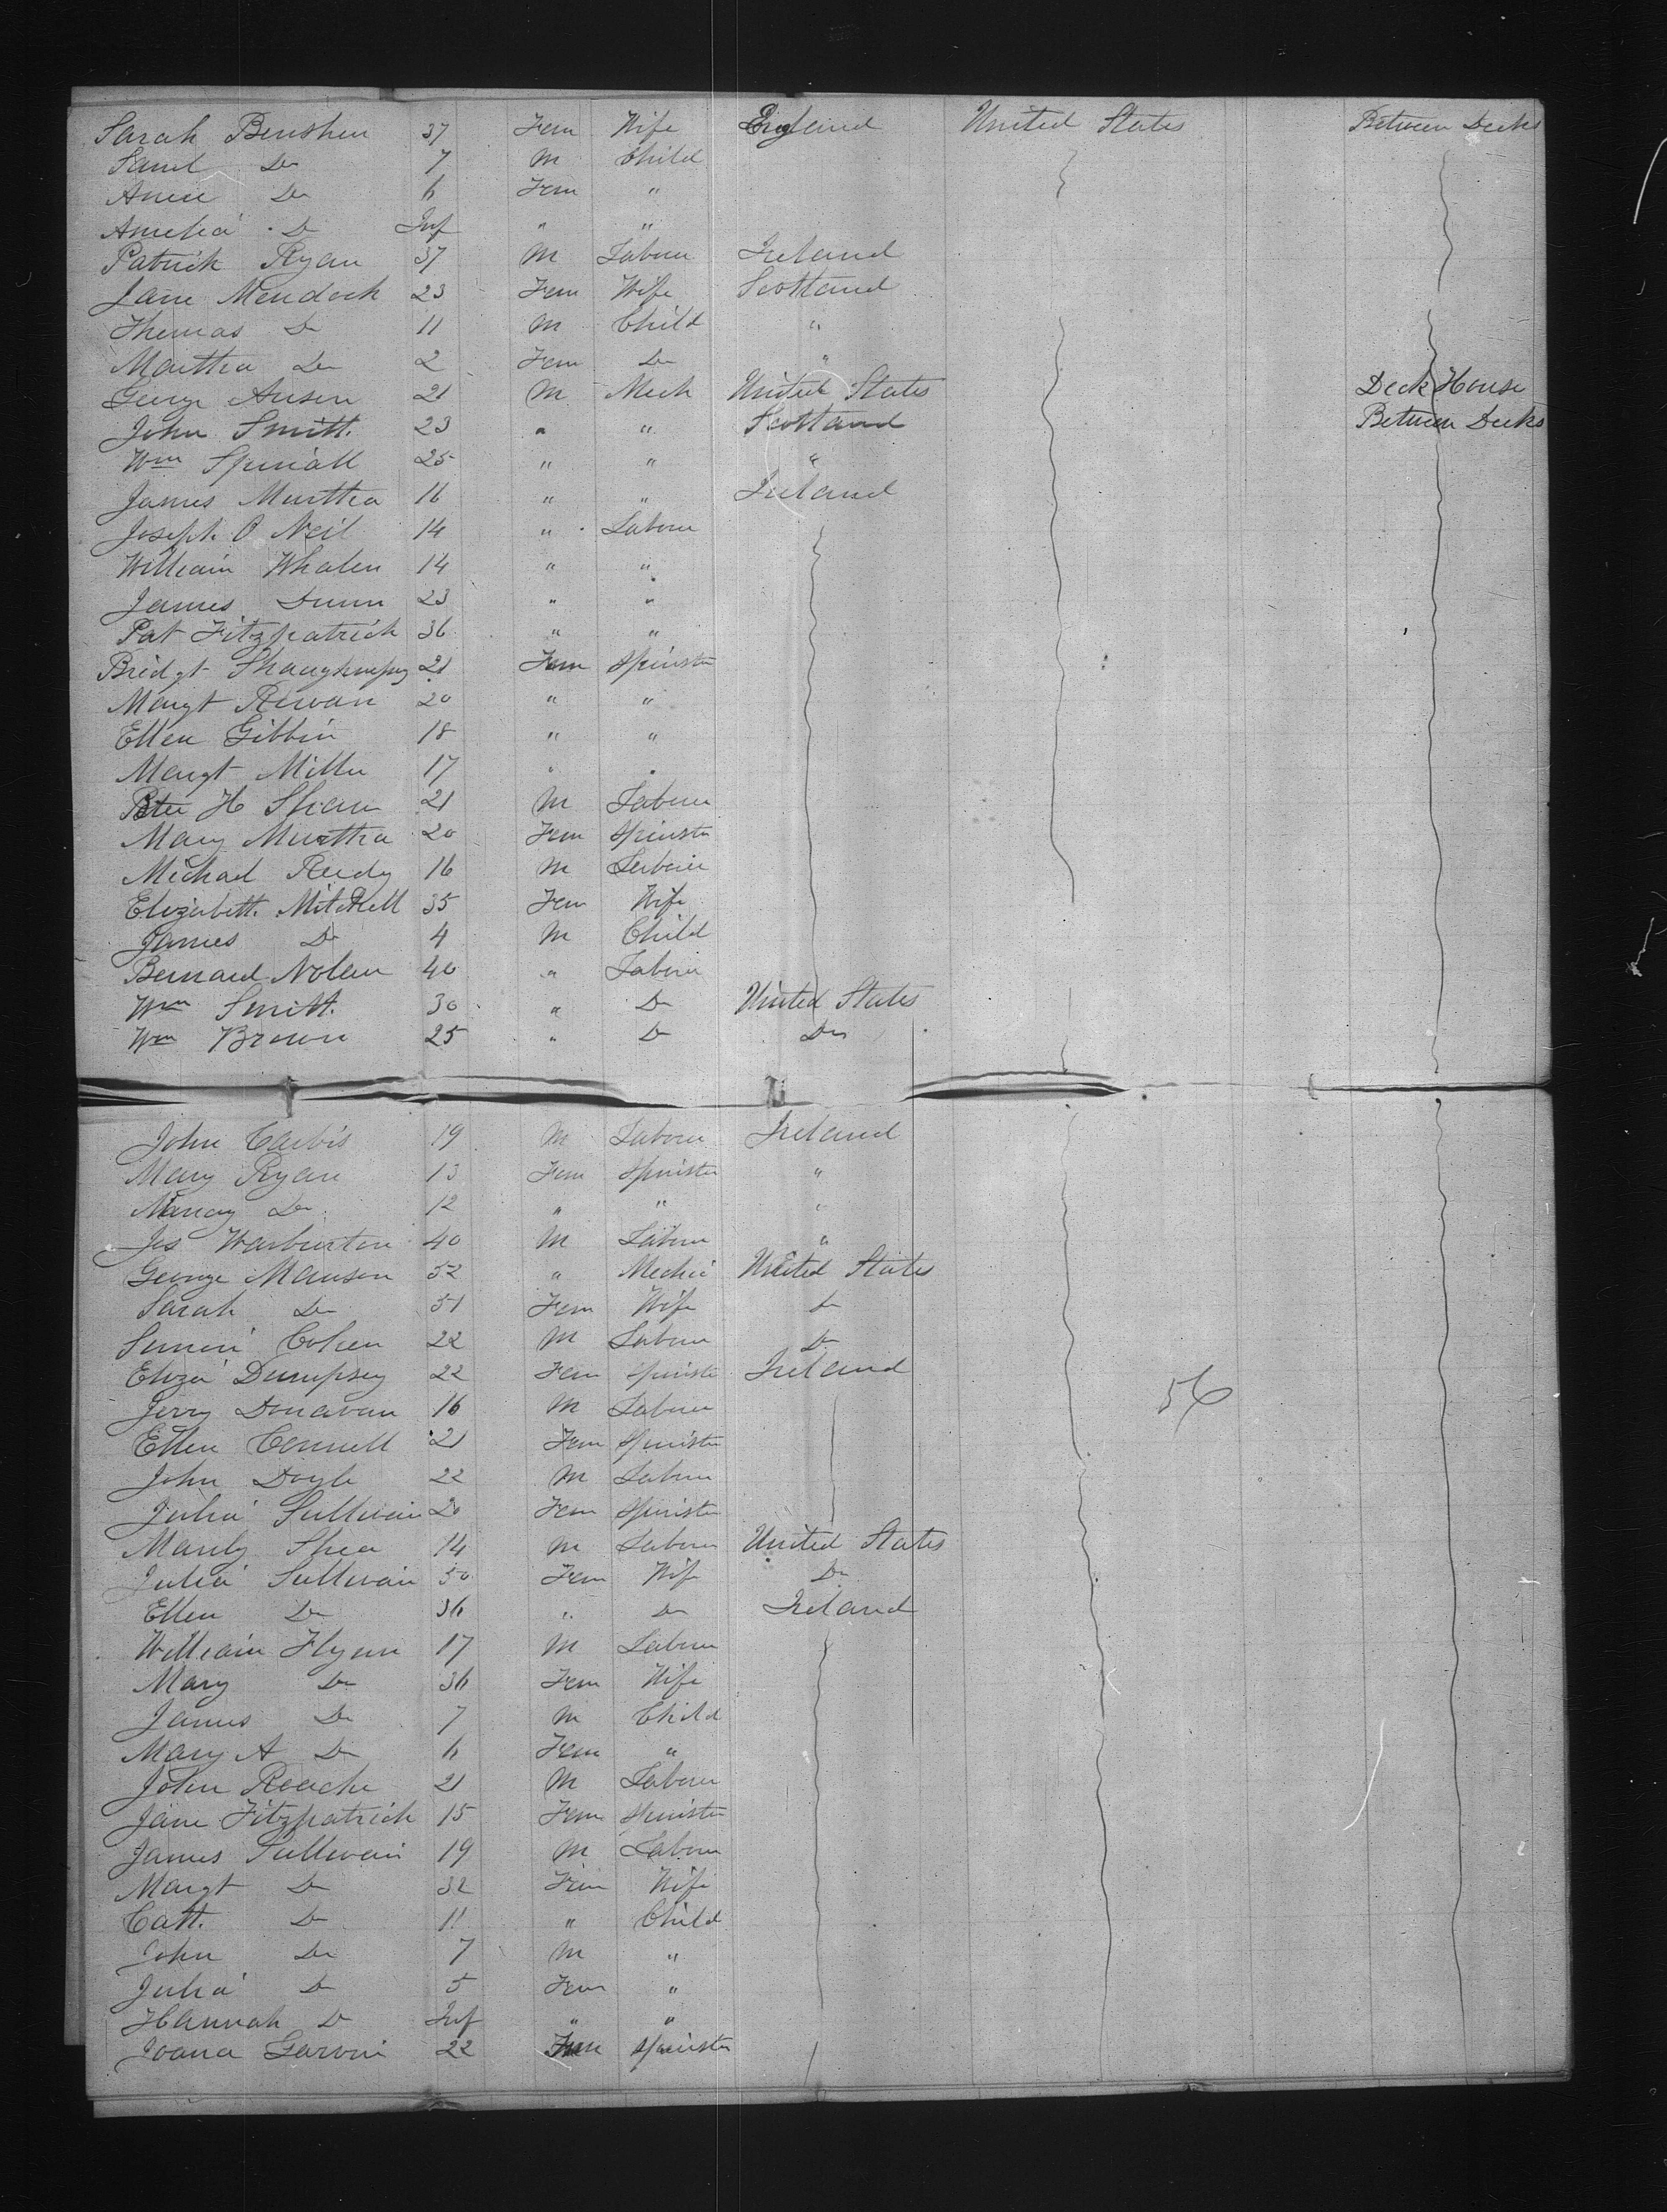 Sarah Benshen 37 Fem Wife England United States Between Decks
Saml Do 7 M Child
Annie Do 6 Fem "
Amelia Do Inf " "
Patrick Ryan 37 M Labour Ireland
Jane Mendock 23 Fem Wife Scotland
Thomas Do 11 M Child "
Martha Do 2 Fem Do "
George Anson 21 M Mech United States Deck House
John Smith 23 " " Scotland Between Decks
Wm Spinall 25 " " "
James Murtha 16 " " Ireland
Joseph O Neil 14 " Labour
William Whalen 14 " "
James Dunn 23 " "
Pat Fitzpatrick 36 " "
Bridgt Shaughnessy 21 Fem Spinster
Margt Kirwan 20 " "
Ellen Gibbin 18 " "
Margt Miller 17 " "
Peter H Shean 21 M Labour
Mary Murtha 20 Fem Spinster
Michael Reidy 16 M Labour
Elizabeth Mitchell 35 Fem Wife
James Do 4 M Child
Bernard Nolan 40 " Labour
Wm Smith 30 " Do United States
Wm Brown 25 " Do Do
John Carbis 19 M Labour Ireland
Mary Ryan 13 Fem Spinster "
Nancy Do 12 " " "
Jos Warburton 40 M Labour "
George Manson 52 " Mechc United States
Sarah Do 51 Fem Wife Do
Simon Cohen 22 M Labour Do
Eliza Dumpsey 22 Fem Spinster Ireland
Jerry Donavan 16 M Labour 56
Ellen Connell 21 Fem Spinster
John Doyle 22 M Labour
Julia Sullivan 20 Fem Spinster
Shea 14 M Labour United States
Julia Sullivan 50 Fem Wife Do
Ellen Do 36 " Do Ireland
William Flynn 17 M Labour
Mary Do 36 Fem Wife
James Do 7 M Child
Mary A Do 6 Fem "
John Roache 21 M Labour
Jane Fitzpatrick 15 Fem Spinster
James Sullivan 19 M Labour
Margt Do 32 Fem Wife
Cath. Do 11 " Child
John Do 7 M "
Julia Do 5 Fem "
Hannah Do Inf " "
Joana Garvin 22 Fem Spinster